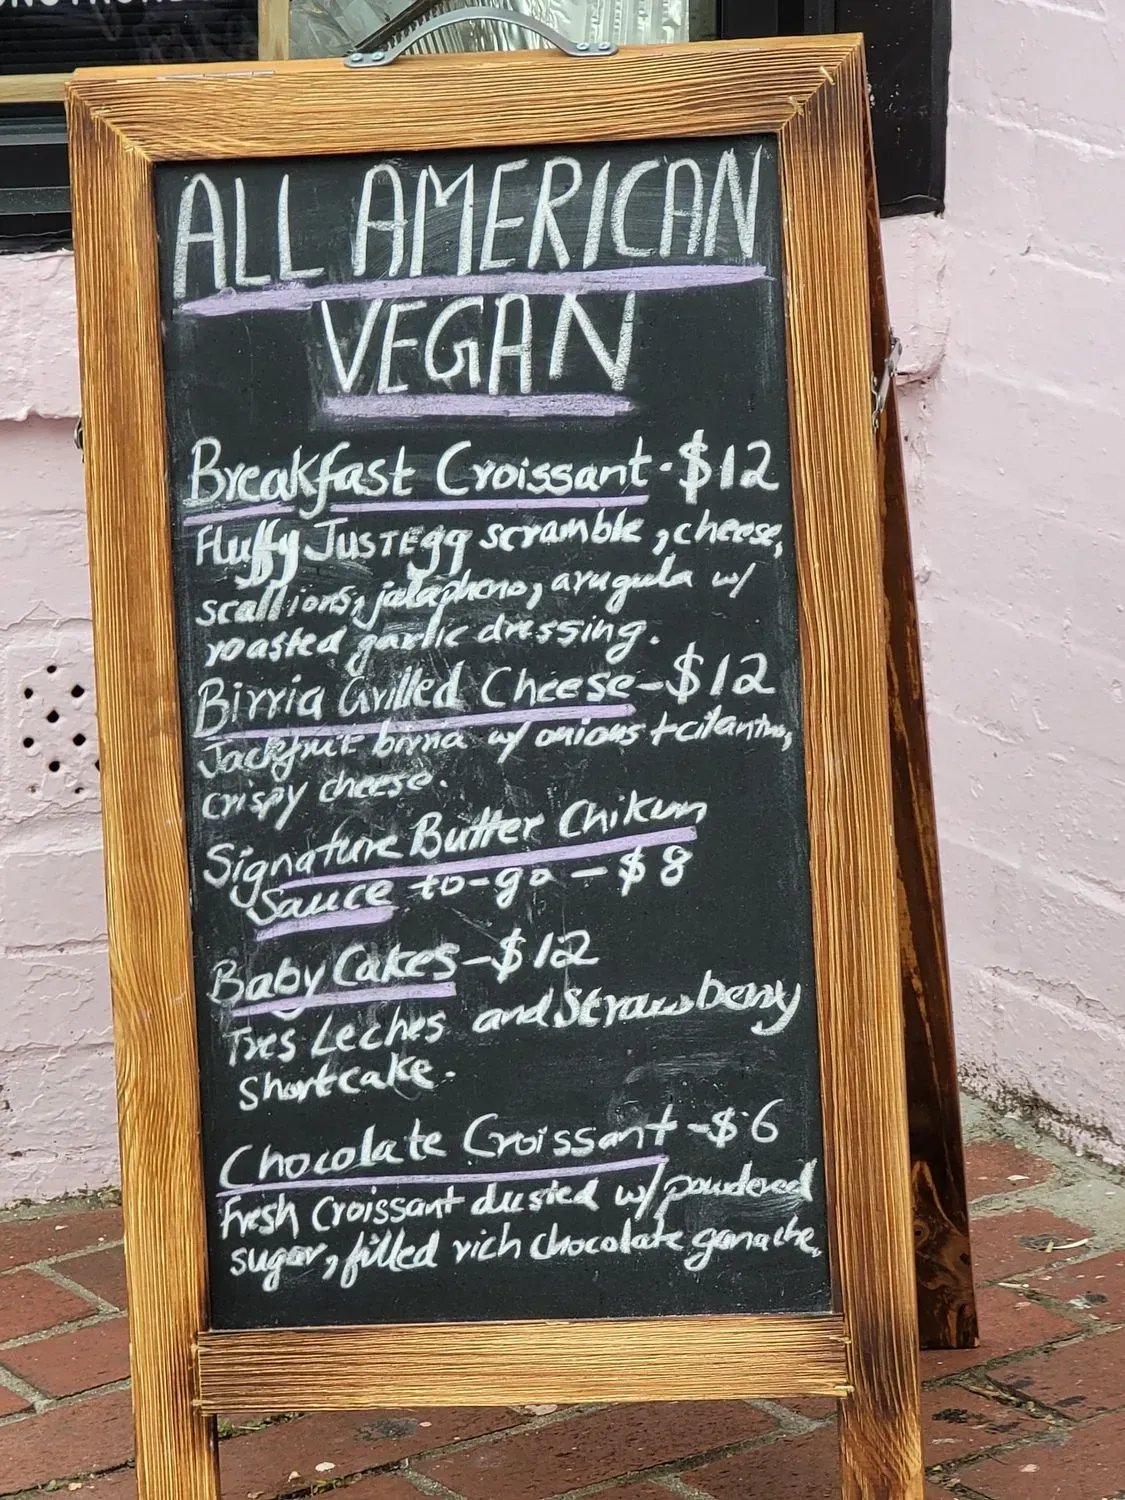 ALL AMERICAN
VEGAN
Breakfast Croissant - $12
Fluffy JUSTEgg scramble, cheese,
scallions, jalapheno, arugula w/
roasted garlic dressing.
Birria Grilled Cheese - $12
Jackfruit birria w/ onions + cilantro,
crispy cheese.
Signature Butter Chikun
Sauce to-go - $8
Baby Cakes - $12
Tres Leches and Strawberry
Shortcake.
Chocolate Croissant - $6
Fresh Croissant dusted w/ powdered
sugar, filled rich chocolate ganache.